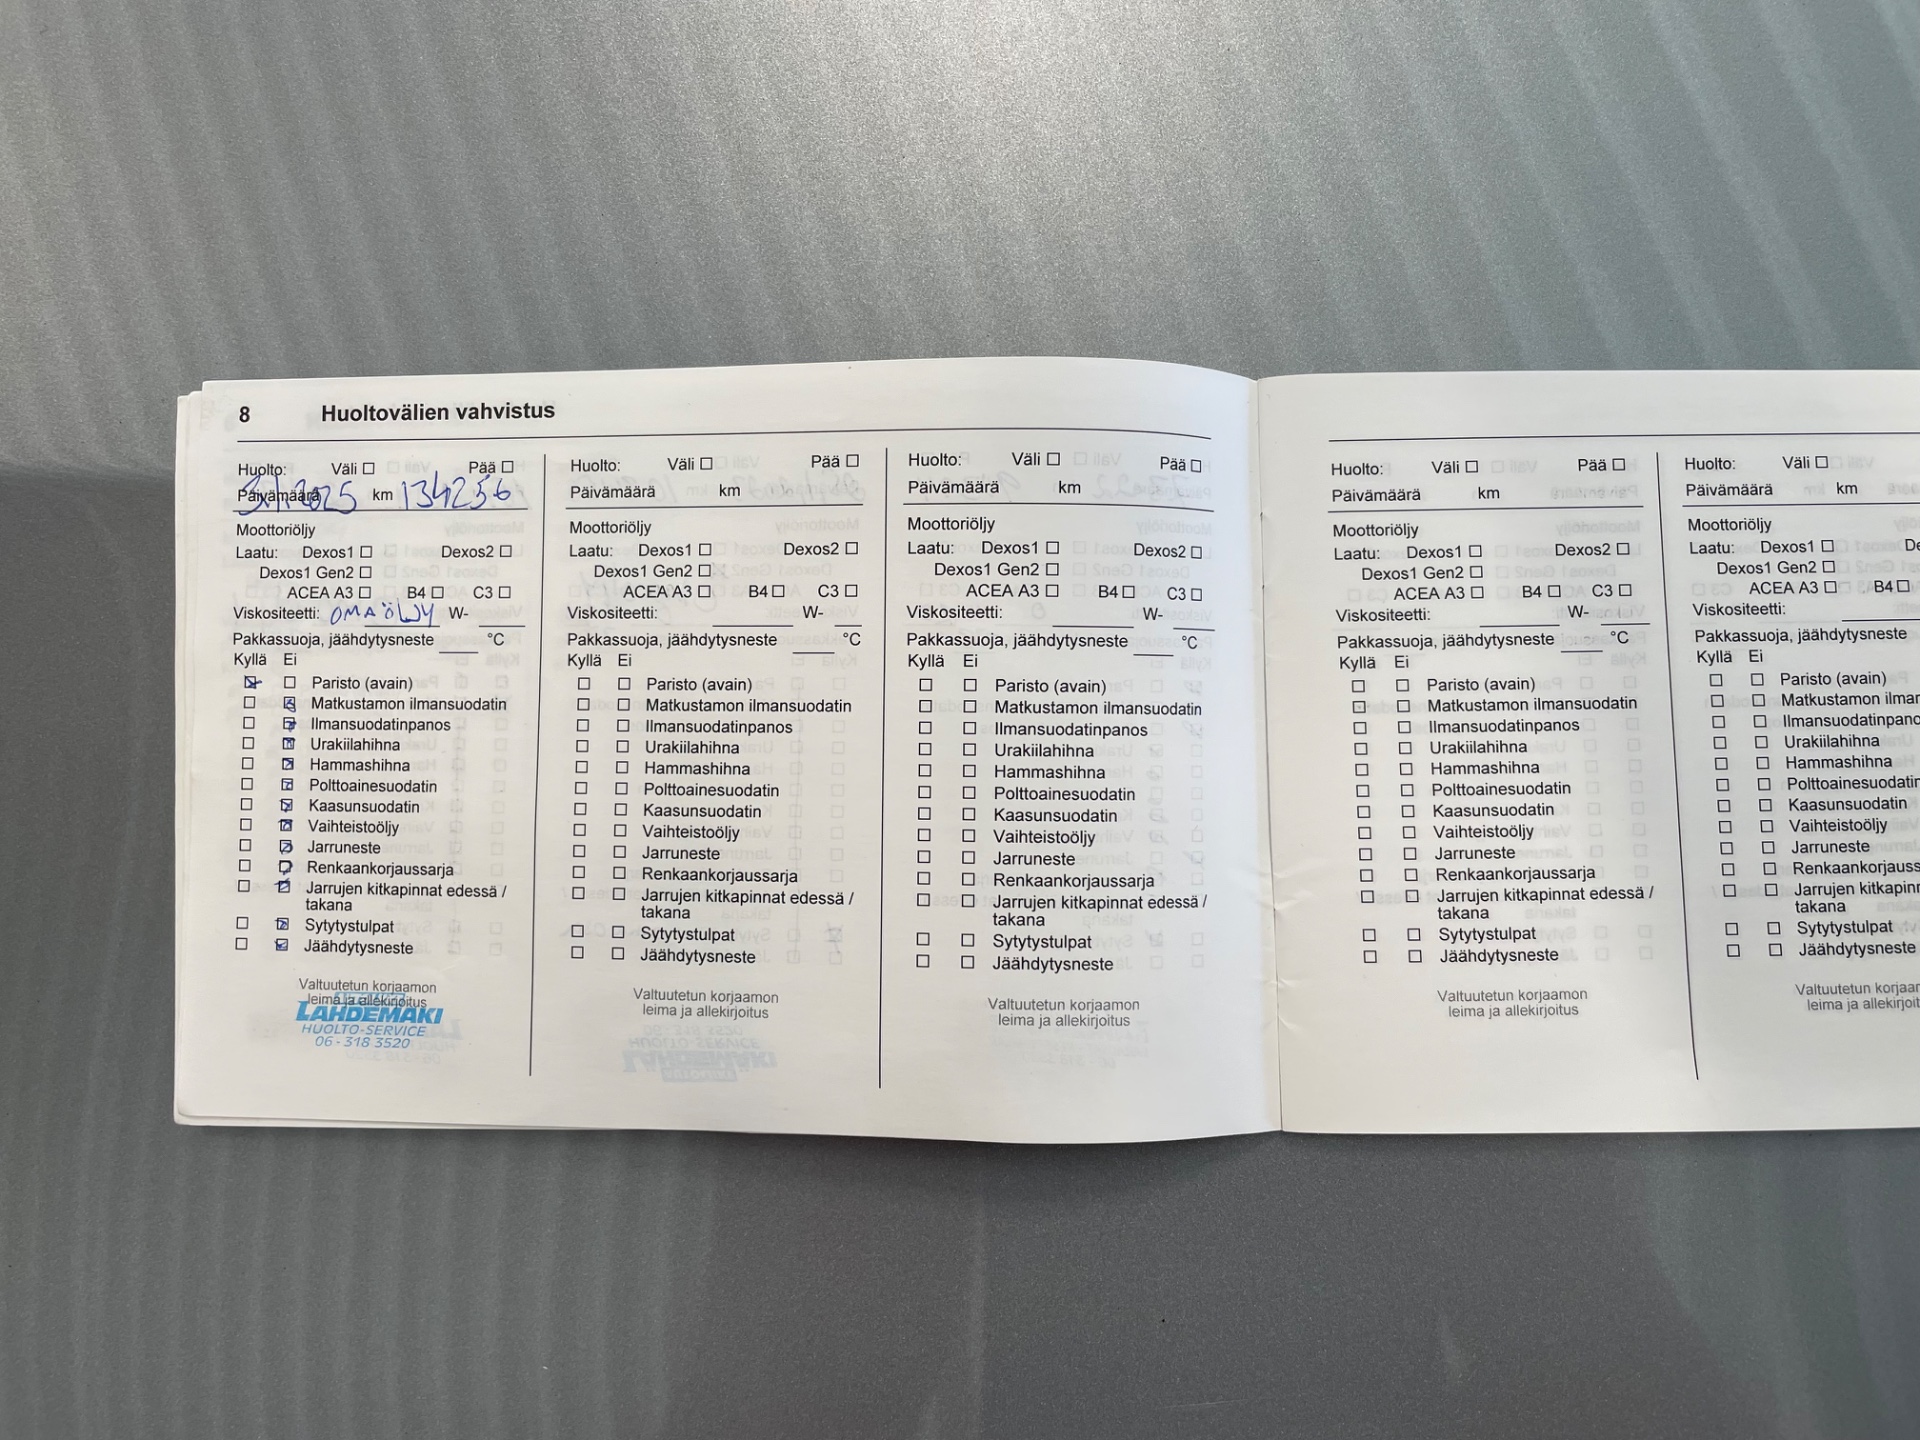 8 Huoltovälien vahvistus
Huolto: Väli ☐ Pää ☐
Päivämäärä 3/1 2025 km 134256
Moottoriöljy
Laatu: Dexos1 ☐ Dexos2 ☐
Dexos1 Gen2 ☐
ACEA A3 ☐ B4 ☐ C3 ☐
Viskositeetti: OMA ÖLJY W-
Pakkassuoja, jäähdytysneste °C
Kyllä Ei
☒ ☐ Paristo (avain)
☐ ☒ Matkustamon ilmansuodatin
☐ ☒ Ilmansuodatinpanos
☐ ☒ Urakiilahihna
☐ ☒ Hammashihna
☐ ☒ Polttoainesuodatin
☐ ☒ Kaasunsuodatin
☐ ☒ Vaihteistoöljy
☐ ☒ Jarruneste
☐ ☒ Renkaankorjaussarja
☐ ☒ Jarrujen kitkapinnat edessä /
takana
☐ ☒ Sytytystulpat
☐ ☒ Jäähdytysneste
Valtuutetun korjaamon
leima ja allekirjoitus
LÄHDEMÄKI
HUOLTO-SERVICE
06-318 3520
Huolto: Väli ☐ Pää ☐
Päivämäärä km
Moottoriöljy
Laatu: Dexos1 ☐ Dexos2 ☐
Dexos1 Gen2 ☐
ACEA A3 ☐ B4 ☐ C3 ☐
Viskositeetti: W-
Pakkassuoja, jäähdytysneste °C
Kyllä Ei
☐ ☐ Paristo (avain)
☐ ☐ Matkustamon ilmansuodatin
☐ ☐ Ilmansuodatinpanos
☐ ☐ Urakiilahihna
☐ ☐ Hammashihna
☐ ☐ Polttoainesuodatin
☐ ☐ Kaasunsuodatin
☐ ☐ Vaihteistoöljy
☐ ☐ Jarruneste
☐ ☐ Renkaankorjaussarja
☐ ☐ Jarrujen kitkapinnat edessä /
takana
☐ ☐ Sytytystulpat
☐ ☐ Jäähdytysneste
Valtuutetun korjaamon
leima ja allekirjoitus
Huolto: Väli ☐ Pää ☐
Päivämäärä km
Moottoriöljy
Laatu: Dexos1 ☐ Dexos2 ☐
Dexos1 Gen2 ☐
ACEA A3 ☐ B4 ☐ C3 ☐
Viskositeetti: W-
Pakkassuoja, jäähdytysneste °C
Kyllä Ei
☐ ☐ Paristo (avain)
☐ ☐ Matkustamon ilmansuodatin
☐ ☐ Ilmansuodatinpanos
☐ ☐ Urakiilahihna
☐ ☐ Hammashihna
☐ ☐ Polttoainesuodatin
☐ ☐ Kaasunsuodatin
☐ ☐ Vaihteistoöljy
☐ ☐ Jarruneste
☐ ☐ Renkaankorjaussarja
☐ ☐ Jarrujen kitkapinnat edessä /
takana
☐ ☐ Sytytystulpat
☐ ☐ Jäähdytysneste
Valtuutetun korjaamon
leima ja allekirjoitus
Huolto: Väli ☐ Pää ☐
Päivämäärä km
Moottoriöljy
Laatu: Dexos1 ☐ Dexos2 ☐
Dexos1 Gen2 ☐
ACEA A3 ☐ B4 ☐ C3 ☐
Viskositeetti: W-
Pakkassuoja, jäähdytysneste °C
Kyllä Ei
☐ ☐ Paristo (avain)
☐ ☐ Matkustamon ilmansuodatin
☐ ☐ Ilmansuodatinpanos
☐ ☐ Urakiilahihna
☐ ☐ Hammashihna
☐ ☐ Polttoainesuodatin
☐ ☐ Kaasunsuodatin
☐ ☐ Vaihteistoöljy
☐ ☐ Jarruneste
☐ ☐ Renkaankorjaussarja
☐ ☐ Jarrujen kitkapinnat edessä /
takana
☐ ☐ Sytytystulpat
☐ ☐ Jäähdytysneste
Valtuutetun korjaamon
leima ja allekirjoitus
Huolto: Väli ☐
Päivämäärä km
Moottoriöljy
Laatu: Dexos1 ☐ De
Dexos1 Gen2 ☐
ACEA A3 ☐ B4 ☐
Viskositeetti:
Pakkassuoja, jäähdytysneste
Kyllä Ei
☐ ☐ Paristo (avain)
☐ ☐ Matkustamon ilmar
☐ ☐ Ilmansuodatinpano
☐ ☐ Urakiilahihna
☐ ☐ Hammashihna
☐ ☐ Polttoainesuodatin
☐ ☐ Kaasunsuodatin
☐ ☐ Vaihteistoöljy
☐ ☐ Jarruneste
☐ ☐ Renkaankorjauss
☐ ☐ Jarrujen kitkapinn
takana
☐ ☐ Sytytystulpat
☐ ☐ Jäähdytysneste
Valtuutetun korjaar
leima ja allekirjoit